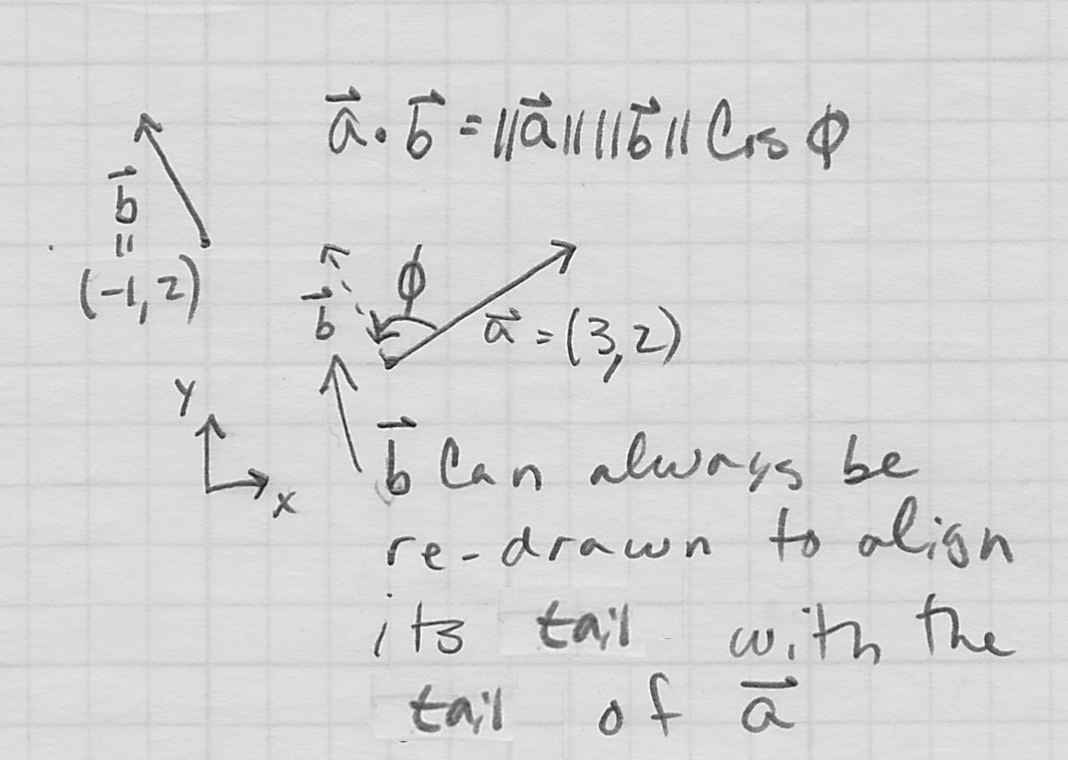 a⃗ · b⃗ = ||a⃗|| ||b⃗|| Cos ϕ
b⃗
=
(-1, 2)
ϕ
b⃗
a⃗ = (3, 2)
y
x
b⃗ Can always be
re-drawn to align
its tail with the
tail of a⃗